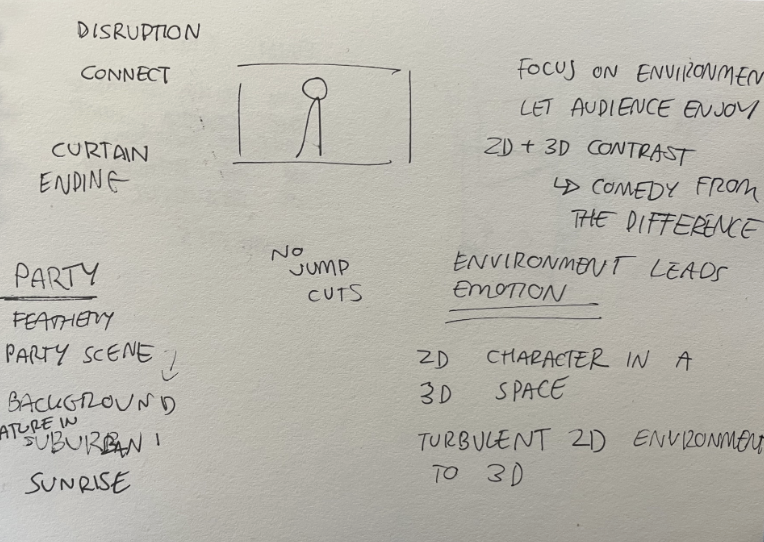 DISRUPTION
CONNECT
CURTAIN
ENDING
PARTY
PARTY SCENE
BACKGROUND
ATURE IN
SUBURBAN
SUNRISE
NO
JUMP
CUTS
FOCUS ON ENVIRONMEN
LET AUDIENCE ENJOY
2D + 3D CONTRAST
↳ COMEDY FROM
THE DIFFERENCE
ENVIRONMENT LEADS
EMOTION
2D CHARACTER IN A
3D SPACE
TURBULENT 2D ENVIRONMENT
TO 3D